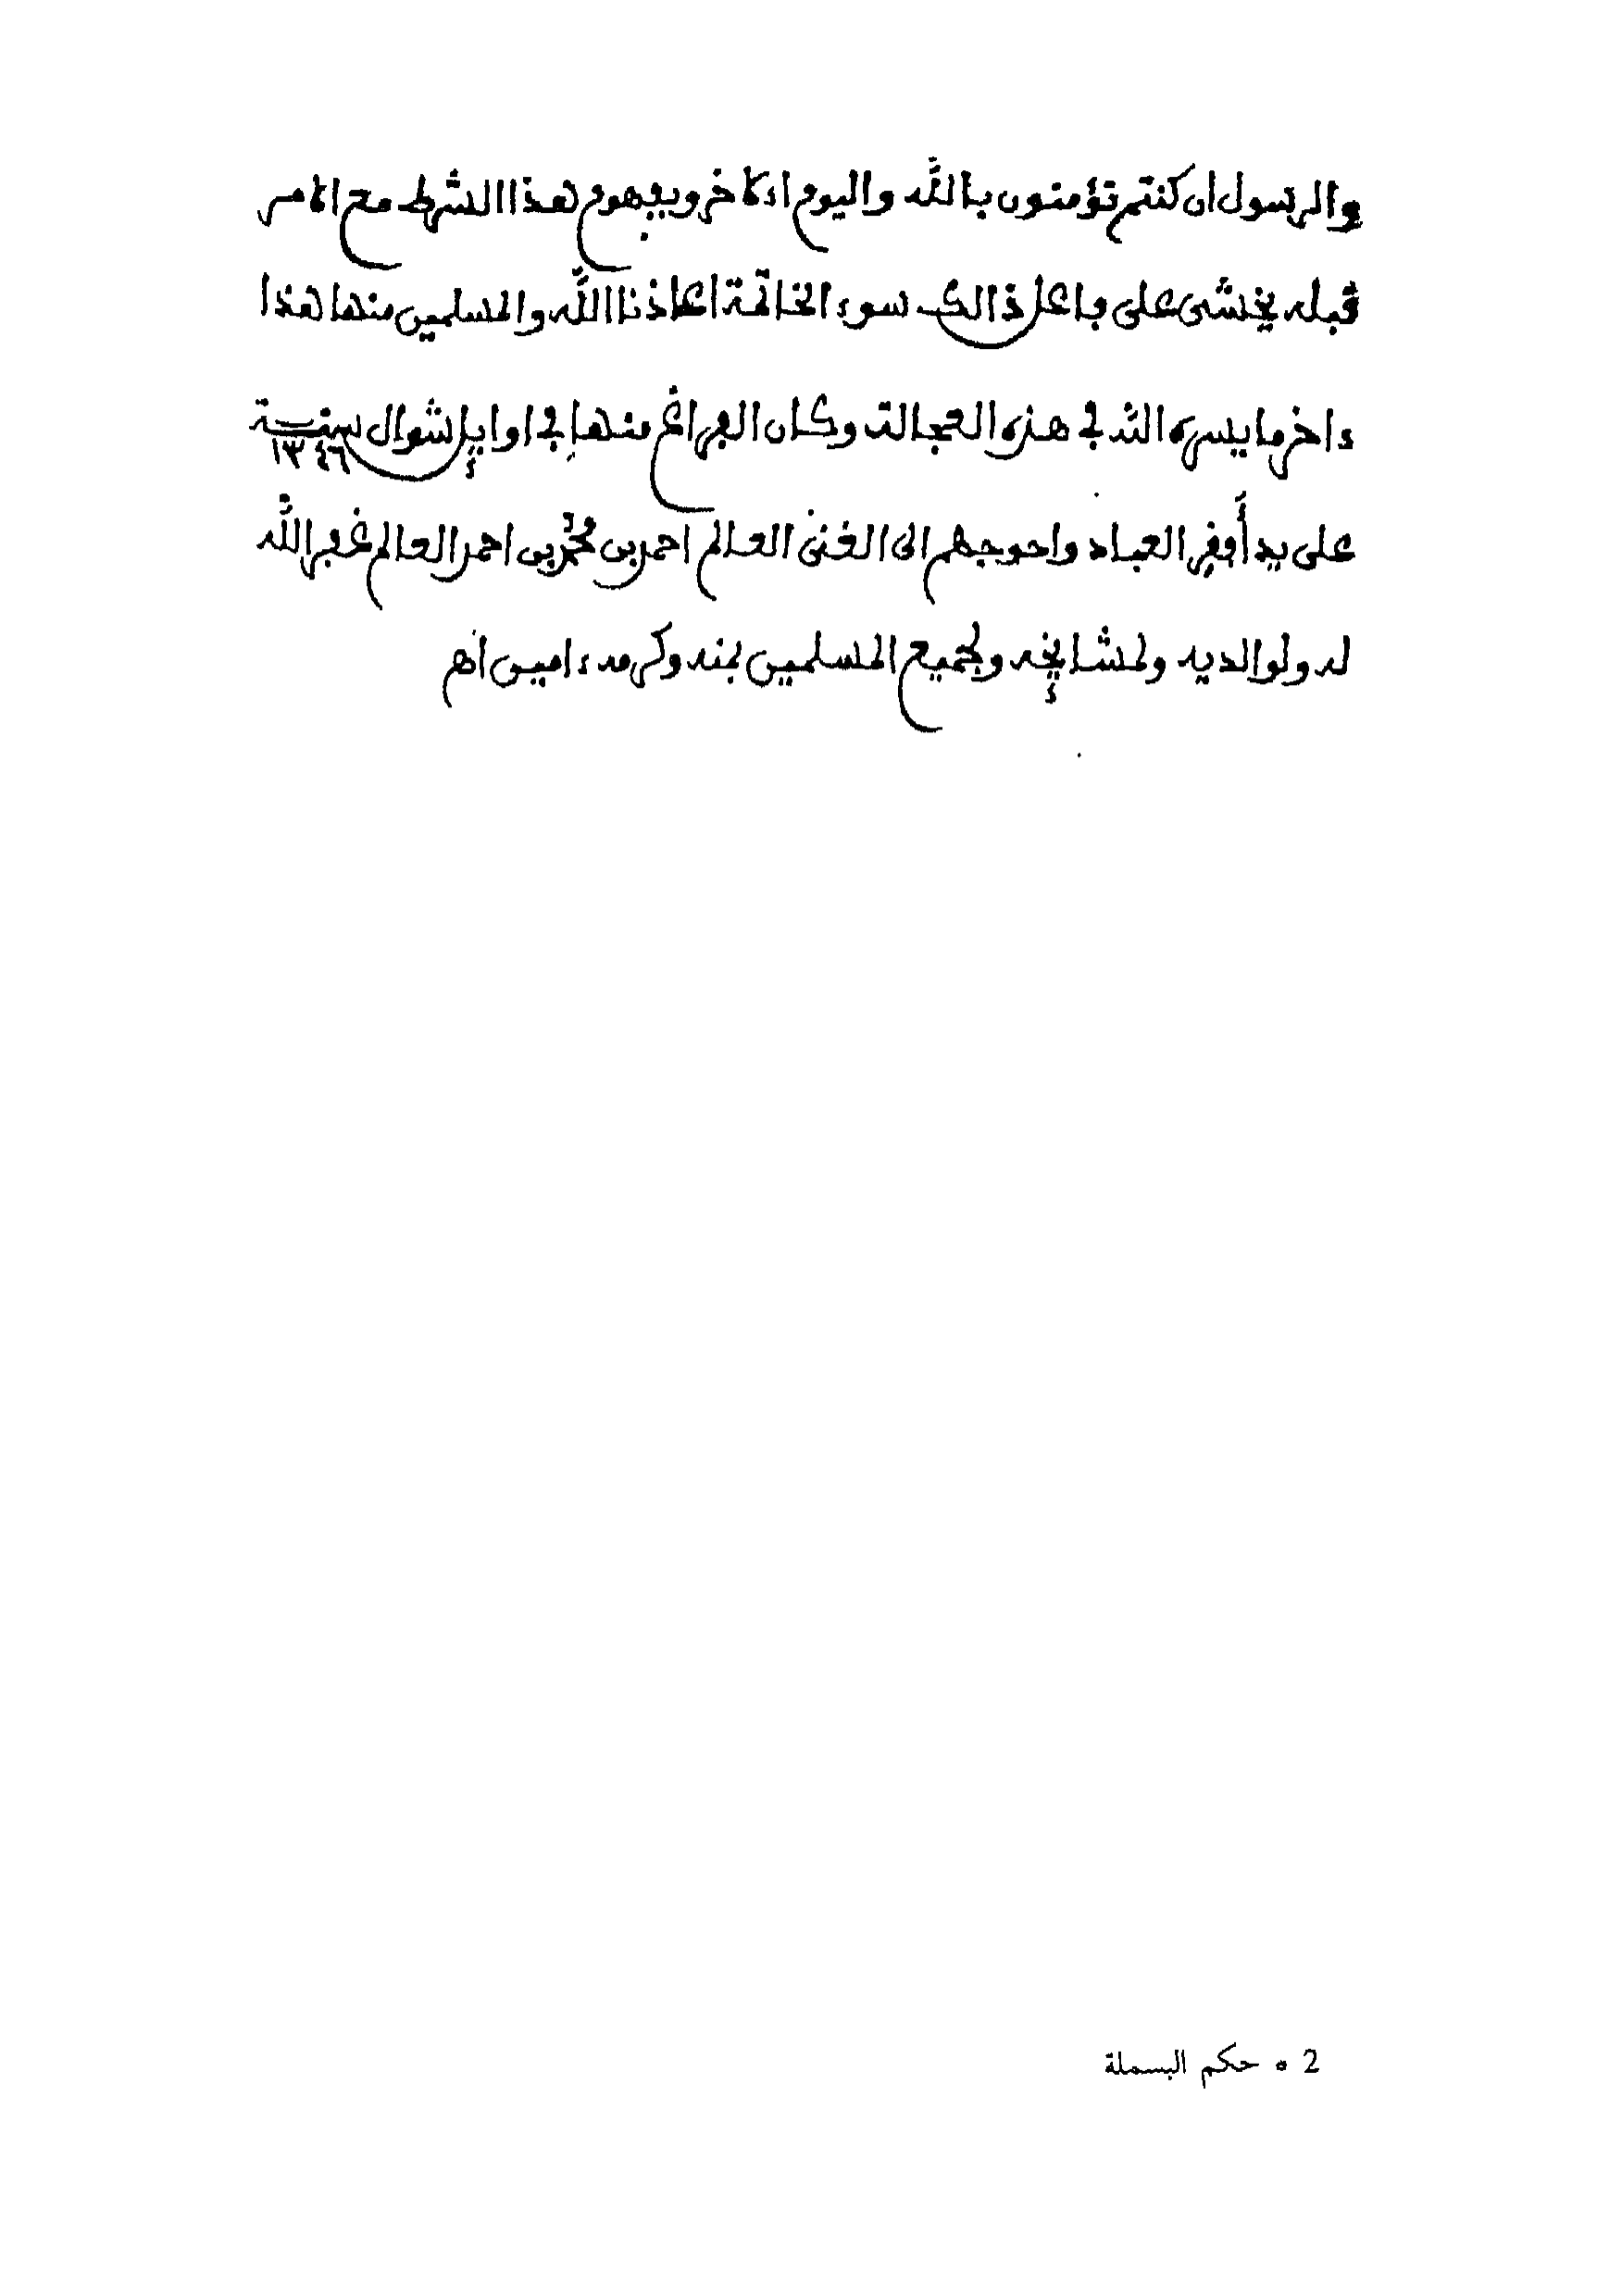 والرسول ان كنتم تؤمنون بالله واليوم الاخر وبمفهوم هذا الشرط مع الامر
قبله يخشى على فاعل ذالك سوء الخاتمة اعاذنا الله والمسلمين منها هذا
ءاخر ما يسره الله في هذه العجالة وكان الفراغ منها في اوايل شوال سنة ١٣٤٦
على يد أفقر العباد واحوجهم الى الغنى العالم احمد بن محمد بن احمد العالم غفر الله
له ولوالديه ولمشايخه ولجميع المسلمين بمنه وكرمه ءامين اهـ
2 • حكم البسملة